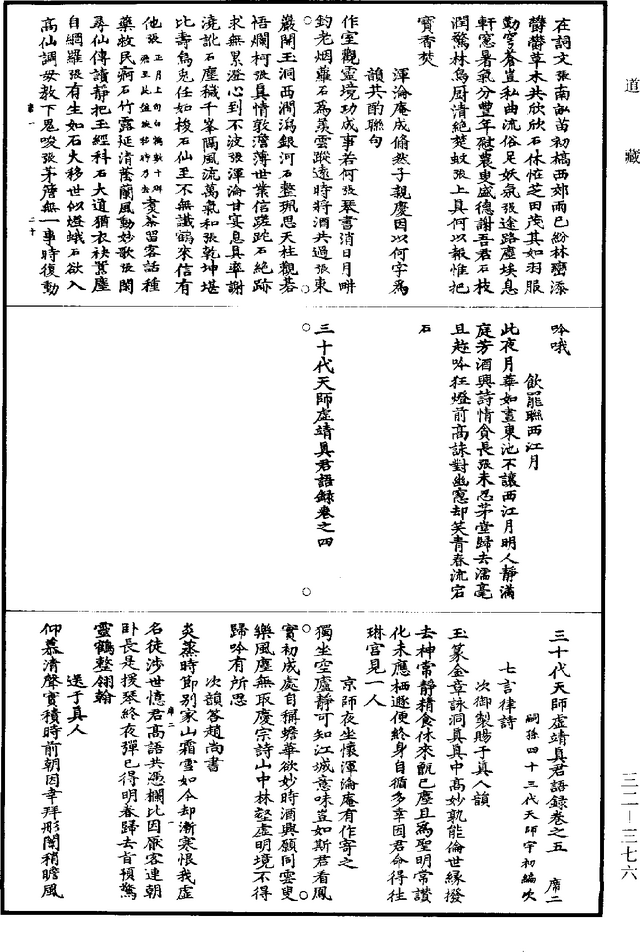 道藏
在詞文張南畝苗初槁西郊雨已紛林巒添
鬱鬱草木共欣欣石休怪芝田茂其如羽服
勤穹蒼豈私曲流俗足妖氛張途路塵埃息
軒窓暑氣分豐年慰農叟盛德謝吾君石枝
潤驚林鳥厨清絶楚蚊張上真何以報惟把
寶香焚
渾淪庵成翛然子親慶因以何字爲
韻共酌聯句
作室觀靈境功成事若何張琴書消日月畊
釣老烟蘿石爲羨雲蹤遠時將酒共過張東
巖開玉洞西澗瀉銀河石整珮思天柱觀碁
悟爛柯張真情敦澹薄世業信蹉跎石絶跡
求無累澄心到不波張渾淪甘宴息真率謝
澆訛石塵穢千峯隔風流萬氣和張乾坤堪
比壽烏兔任如梭石仙王不無讖鶴來信有
他張
煑茶留客話種
藥救民痾石竹露延清蔭蘭風動妙歌張閑
尋仙傳讀靜把玉經科石大道猶衣袂甚塵
自網羅張有生如石火移世似燈蛾石欲入
高仙調毋教下鬼唆張茅簷無一事時復動
吟哦
飲罷聯西江月
此夜月華如晝東池不讓西江月明人靜滿
庭芳酒興詩情貪長張未忍茅堂歸去濡毫
且趂吟狂燈前高詠對幽窓却笑青春流宕
石
三十代天師虛靖真君語錄卷之四
三十代天師虛靖真君語錄卷之五 席二
嗣孫四十三代天師宇初編次
七言律詩
次御製賜于真人韻
玉篆金章詠洞真真中高妙孰能倫世緣撥
去神常靜精食休來甑已塵且爲聖明常讚
化未應栖遯便終身自循多幸因君命得往
琳宮見一人
京師夜坐懷渾淪庵有作寄之
獨坐空廬靜可知江城意味豈如斯君看鳳
實初成處自稱蟾華欲妙時酒興願同雲叟
樂風塵無取慶宗詩山中林壑虛明境不得
歸吟有所思
次韻答趙尚書
炎蒸時節別家山霜雪如今却漸寒恨我虛
名徒涉世憶君高語共憑欄比因厭客連朝
卧長是援琴終夜彈已得明春歸去旨預驚
靈鶴整翎翰
送于真人
仰慕清聲實積時前朝因幸拜彤闈稍瞻風
三二—三七六